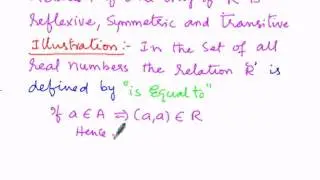 Reflexive, Symmetric and Transitive
Illustration:- In the Set of all
real Numbers the relation 'R' is
defined by "is Equal to"
If a ∈ A ⇒ (a,a) ∈ R
Hence